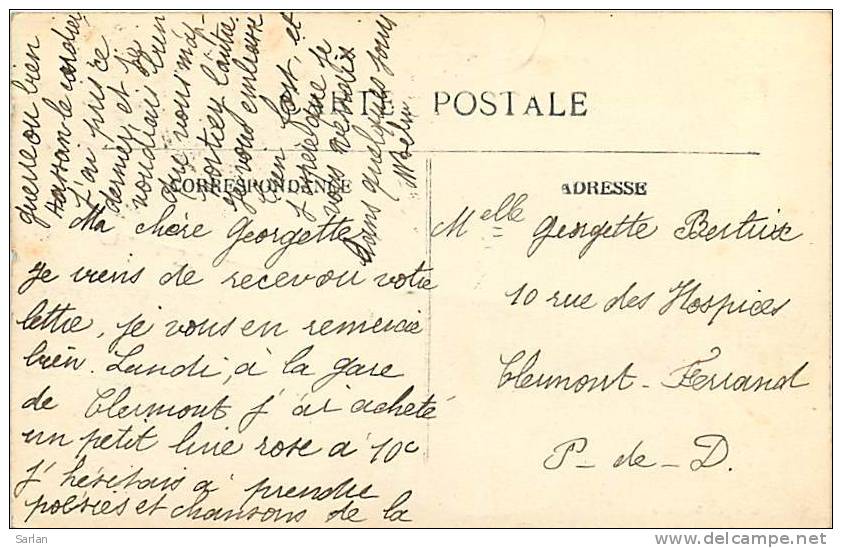 CARTE POSTALE
CORRESPONDANCE
ADRESSE
Ma chère Georgette
Je viens de recevoir votre
lettre, je vous en remercie
bien. Lundi, à la gare
de Clermont j'ai acheté
un petit livre rose à 10c
J'hésitais à prendre
poésies et chansons de la
guerre ou bien
Hassan le cordier
J'ai pris ce
dernier et je
voudrais bien
que vous m'ap-
portiez l'autre.
Je vous embrasse
bien fort, et
j'espère que je
vous verrai
dans quelques jours
Melle Georgette Bertrix
10 rue des Hospices
Clermont-Ferrand
P-de-D.
© Sarlan
delcampe.net